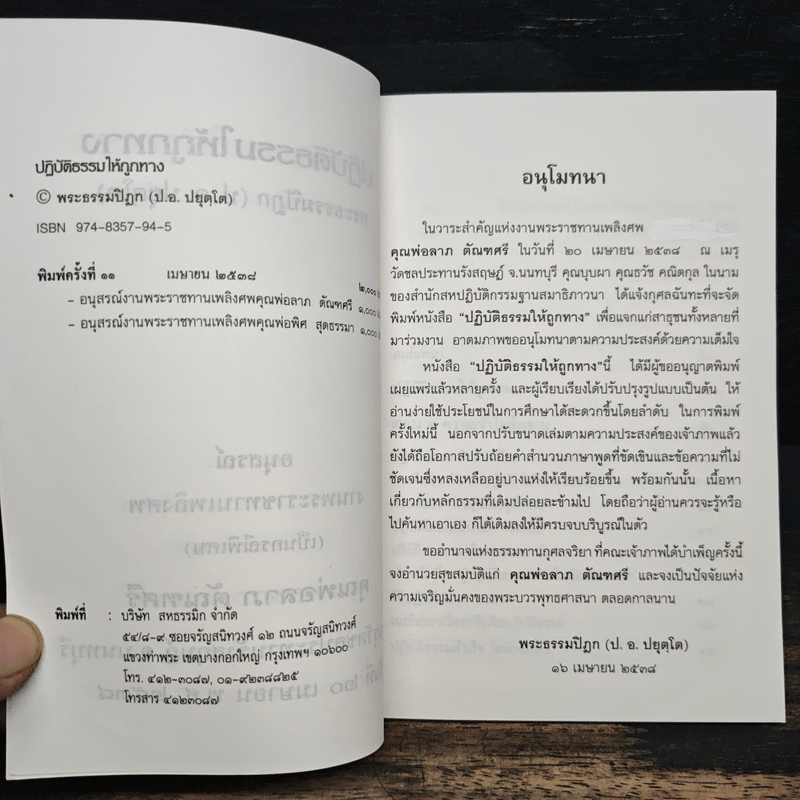 ปฏิบัติธรรมให้ถูกทาง
© พระธรรมปิฎก (ป.อ. ปยุตฺโต)
ISBN 974-8357-94-5
พิมพ์ครั้งที่ ๑๑ เมษายน ๒๕๓๘ ๒,๐๐๐
– อนุสรณ์งานพระราชทานเพลิงศพคุณพ่อลาภ ตัณฑศรี ๑,๐๐๐
– อนุสรณ์งานพระราชทานเพลิงศพคุณพ่อพิศ สุดธรรมา ๑,๐๐๐
พิมพ์ที่ : บริษัท สหธรรมิก จำกัด
๕๔/๘-๙ ซอยจรัญสนิทวงศ์ ๑๒ ถนนจรัญสนิทวงศ์
แขวงท่าพระ เขตบางกอกใหญ่ กรุงเทพฯ ๑๐๖๐๐
โทร. ๔๑๒-๓๐๘๗, ๐๑-๙๒๓๘๘๒๕
โทรสาร ๔๑๒๓๐๘๗
อนุโมทนา
ในวาระสำคัญแห่งงานพระราชทานเพลิงศพ
คุณพ่อลาภ ตัณฑศรี ในวันที่ ๒๐ เมษายน ๒๕๓๘ ณ เมรุ
วัดชลประทานรังสฤษฎ์ จ.นนทบุรี คุณบุบผา คุณธวัช คณิตกุล ในนาม
ของสำนักสหปฏิบัติกรรมฐานสมาธิภาวนา ได้แจ้งกุศลฉันทะที่จะจัด
พิมพ์หนังสือ “ปฏิบัติธรรมให้ถูกทาง” เพื่อแจกแก่สาธุชนทั้งหลายที่
มาร่วมงาน อาตมภาพขออนุโมทนาตามความประสงค์ด้วยความเต็มใจ
หนังสือ “ปฏิบัติธรรมให้ถูกทาง”นี้ ได้มีผู้ขออนุญาตพิมพ์
เผยแพร่แล้วหลายครั้ง และผู้เรียบเรียงได้ปรับปรุงรูปแบบเป็นต้น ให้
อ่านง่ายใช้ประโยชน์ในการศึกษาได้สะดวกขึ้นโดยลำดับ ในการพิมพ์
ครั้งใหม่นี้ นอกจากปรับขนาดเล่มตามความประสงค์ของเจ้าภาพแล้ว
ยังได้ถือโอกาสปรับถ้อยคำสำนวนภาษาพูดที่ขัดเขินและข้อความที่ไม่
ชัดเจนซึ่งหลงเหลืออยู่บางแห่งให้เรียบร้อยขึ้น พร้อมกันนั้น เนื้อหา
เกี่ยวกับหลักธรรมที่เดิมปล่อยละข้ามไป โดยถือว่าผู้อ่านควรจะรู้หรือ
ไปค้นหาเอาเอง ก็ได้เติมลงให้มีครบจบบริบูรณ์ในตัว
ขออำนาจแห่งธรรมทานกุศลจริยา ที่คณะเจ้าภาพได้บำเพ็ญครั้งนี้
จงอำนวยสุขสมบัติแก่ คุณพ่อลาภ ตัณฑศรี และจงเป็นปัจจัยแห่ง
ความเจริญมั่นคงของพระบวรพุทธศาสนา ตลอดกาลนาน
พระธรรมปิฎก (ป. อ. ปยุตฺโต)
๑๖ เมษายน ๒๕๓๘